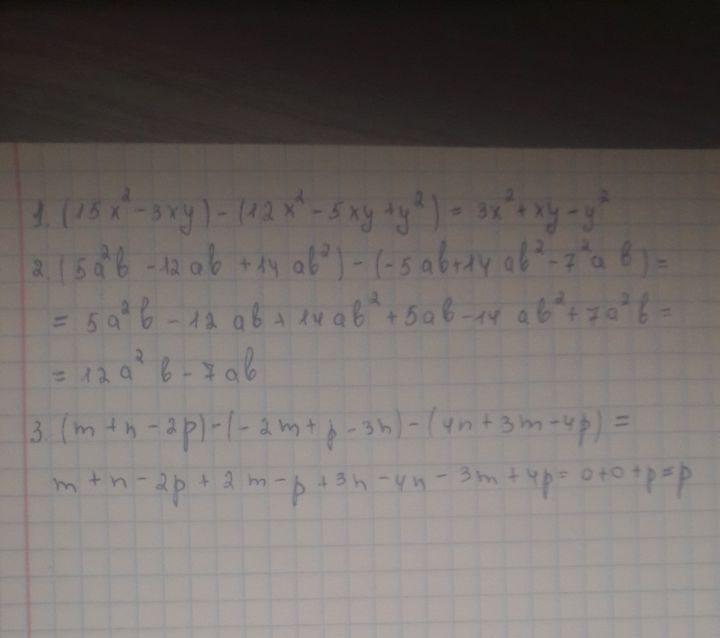 1. (15x² - 3xy) - (12x² - 5xy + y²) = 3x² + xy - y²
2. (5a²b - 12ab + 14ab²) - (-5ab + 14ab² - 7²ab) =
= 5a²b - 12ab + 14ab² + 5ab - 14ab² + 7a²b =
= 12a²b - 7ab
3. (m + n - 2p) - (-2m + p - 3n) - (4n + 3m - 4p) =
m + n - 2p + 2m - p + 3n - 4n - 3m + 4p = 0 + 0 + p = p